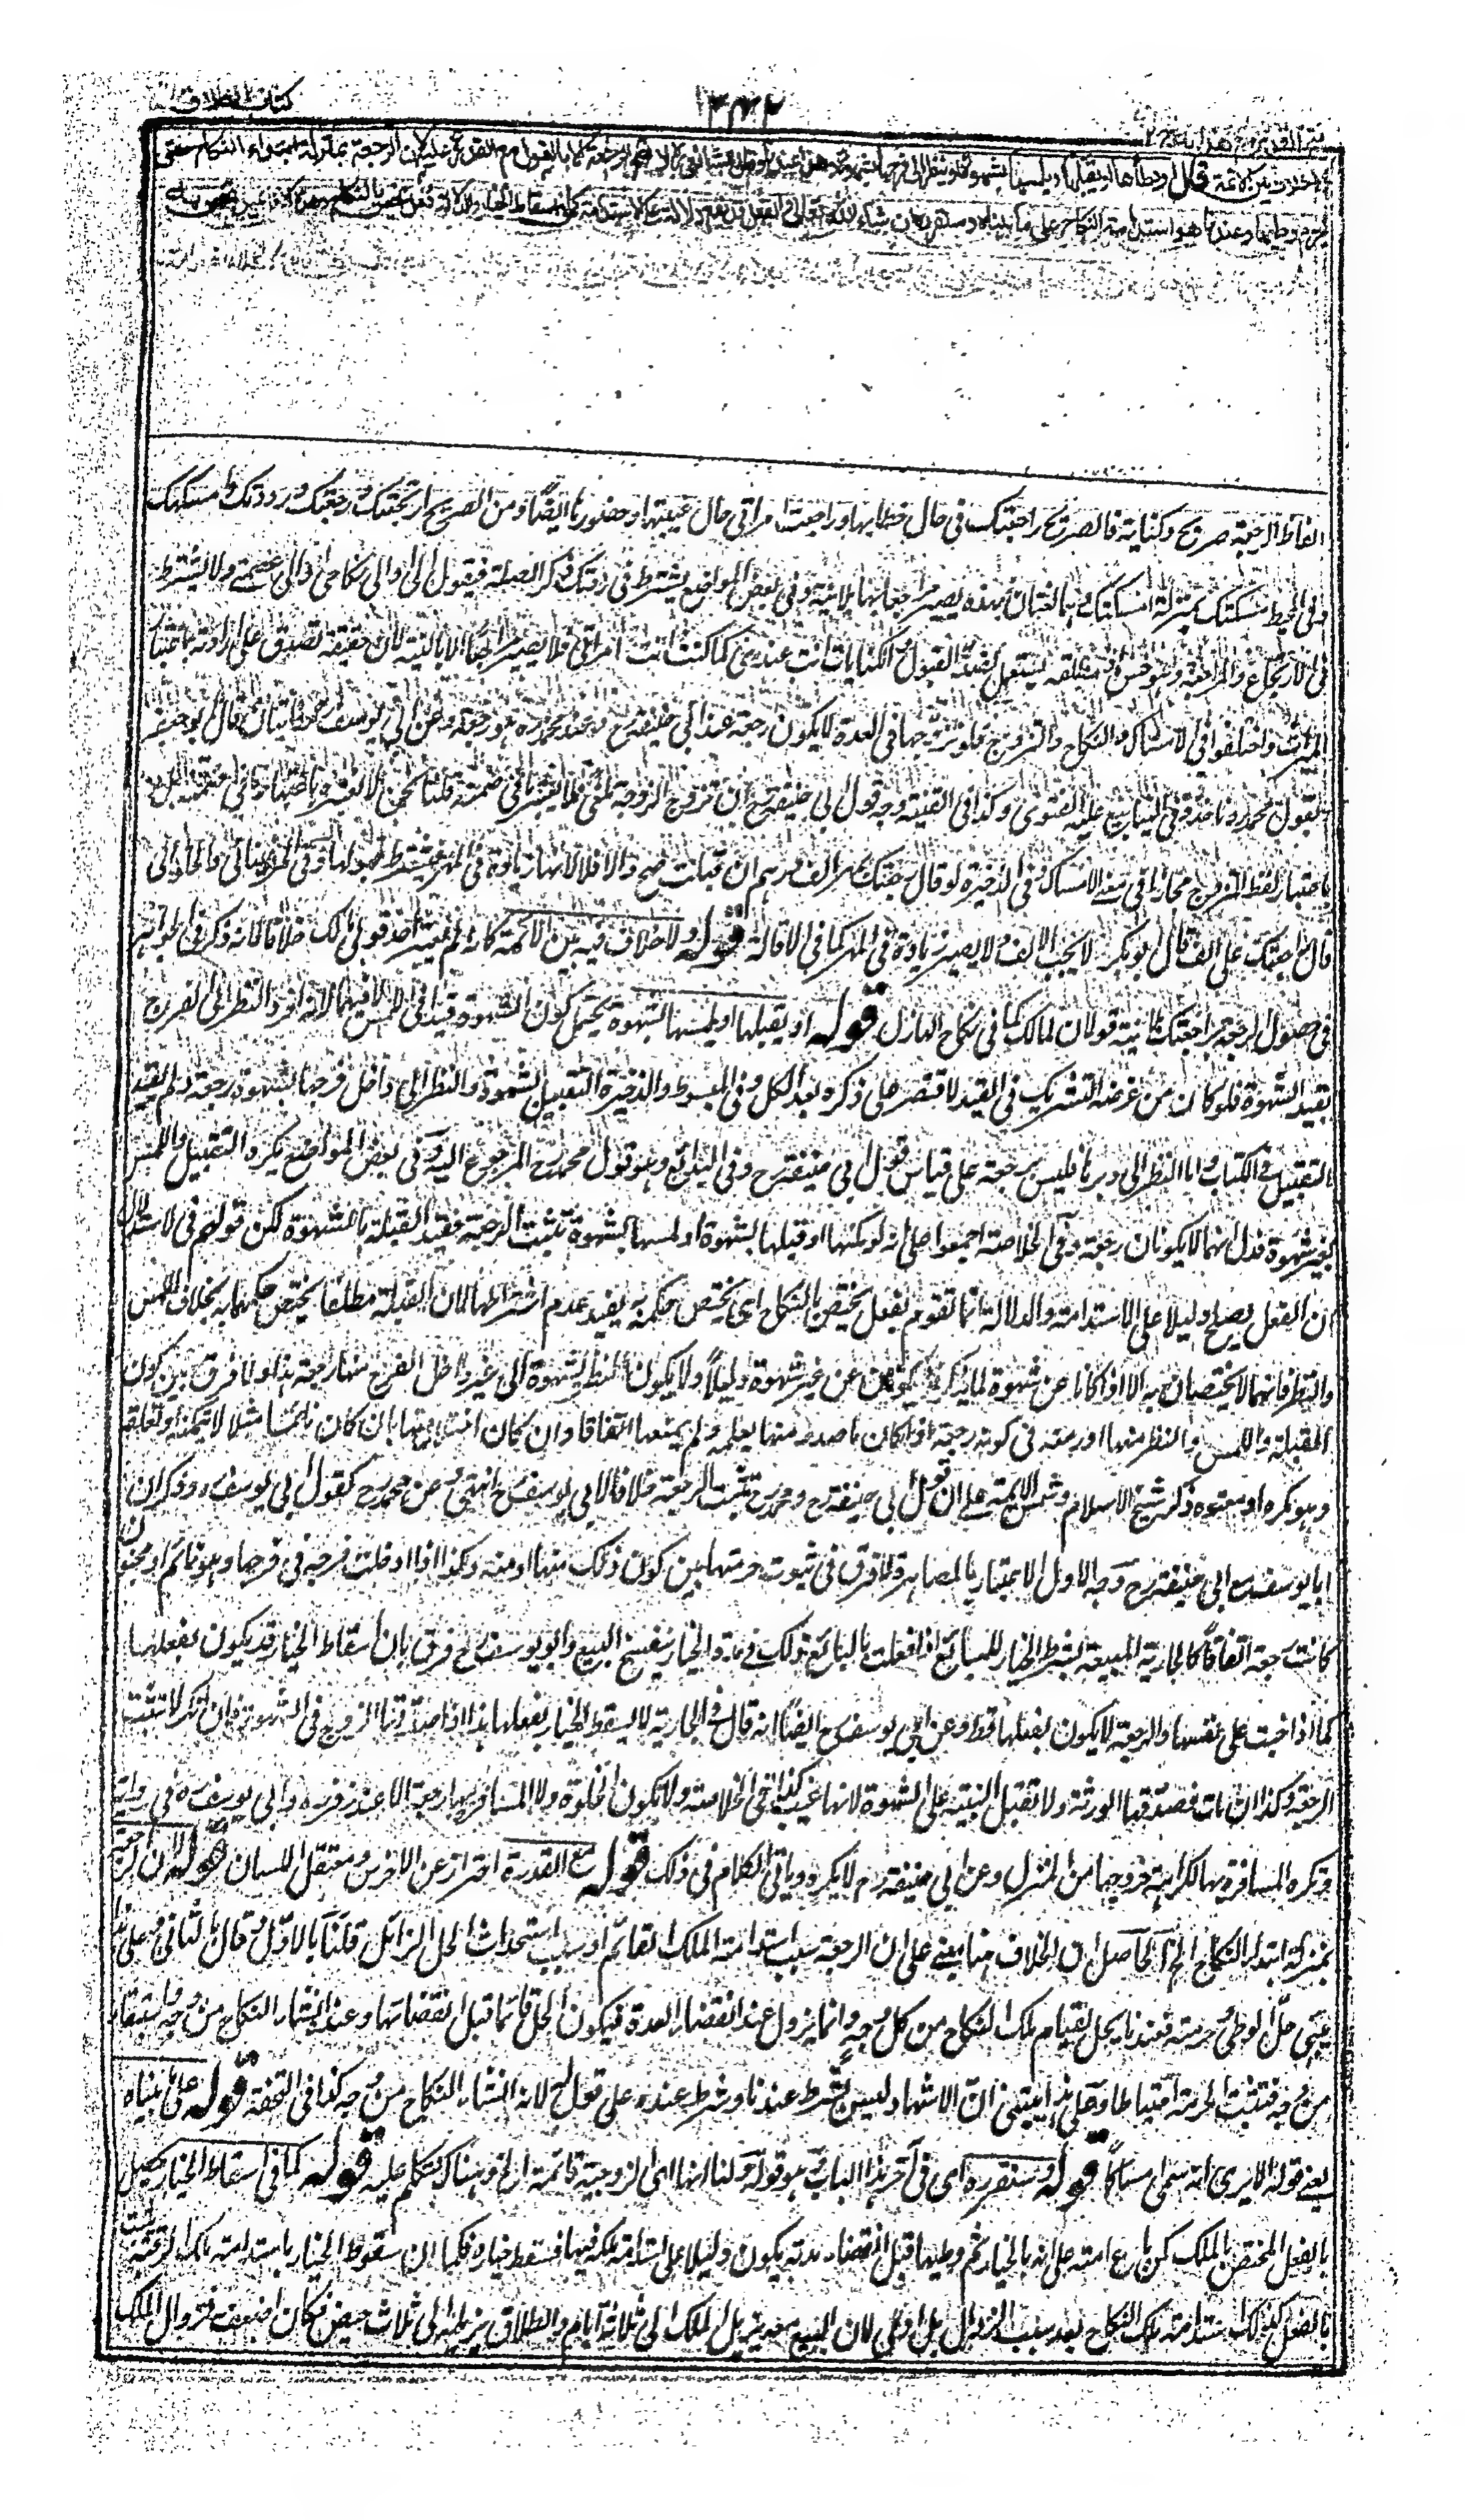 كتاب الطلاق
ولا خلاف فيه بين الائمة قال او يطأها او يقبلها او يلمسها بشهوة او ينظر الى فرجها بشهوة وهذا عندنا وقال الشافعي لا تصح الرجعة الا بالقول مع القدرة عليه لان الرجعة بمنزلة ابتداء النكاح حتى
يحرم وطيها وعندنا هو استدامة النكاح على ما بيناه وسنقرره ان شاء الله تعالى والفعل قد يقع دلالة على الاستدامة كما في اسقاط الخيار والدلالة فعل يختص بالنكاح وهذه الافاعيل تختص به
الفاظ الرجعة صريح وكناية فالصريح راجعتك في حال خطابها وراجعت امرأتي حال غيبتها وحضورها ايضا ومن الصريح ارتجعتك ورجعتك ورددتك وامسكتك
وفي المحيط مسكتك بمنزلة امسكتك وهما لغتان فهذه يصير مراجعا بها بلا نية وفي بعض المواضع يشترط في رددتك ذكر الصلة فيقول الي او الى نكاحي او الى عصمتي ولا يشترط
في الارتجاع والمراجعة وهو حسن اذ مطلقه يستعمل لضد القبول والكنايات انت عندي كما كنت انت امرأتي فلا يصير مراجعا الا بالنية لان حقيقته تصدق على ارادته باعتبار
الميراث واختلفوا في الامساك والنكاح والتزوج فلو تزوجها في العدة لا يكون رجعة عند ابي حنيفة رح وعند محمد ره هو رجعة وعن ابي يوسف رح روايتان قال ابو جعفر
بقول محمد ره ناخذ وفي الينابيع عليه الفتوى وكذا في القنية وجه قول ابي حنيفة رح ان تزوج الزوجة ملغى فلا يعتبر ما في ضمنه قلنا نحن لا نعتبره باعتبار
باعتبار لفظ التزوج مجازا في معنى الامساك وفي الذخيرة لو قال راجعتك بمهر الف درهم ان قبلت صح والا فلا لانها زيادة في المهر فيشترط قبولها وفي المرغيناني والحاوي
قال راجعتك على الف قال ابو بكر لا يجب الالف ولا يصير زيادة في المهر كما في الاقالة قوله ولا خلاف فيه بين الائمة كانه لم يعتبر احد قولي مالك خلافا لانه ذكر في الجواهر
في حصول الرجعة براجعتك بلا نية قولان لمالك كما في نكاح الهازل قوله او يقبلها او يلمسها بشهوة يحتمل كون الشهوة قيدا في اللمس لا فيهما لانه افرد النظر الى الفرج
بقيد الشهوة فلو كان من غرضه التشريك في القيد لاقتصر على ذكره بعد الكل وفي المبسوط والذخيرة التقبيل بشهوة والنظر الى داخل فرجها بشهوة رجعة ولم يقيد
التقبيل في الكتاب واما النظر الى دبرها فليس برجعة على قياس قول ابي حنيفة رح وفي البدائع وهو قول محمد رح المرجوع اليه وفي بعض المواضع يكره التقبيل واللمس
بغير شهوة فدل انهما لا يكونان رجعة وفي الخلاصة اجمعوا على انه لو مسها او قبلها بشهوة او لمسها بشهوة تثبت الرجعة فقيد القبلة بالشهوة لكن قولهم في الاستدلال
ان الفعل يصلح دليلا على الاستدامة والدلالة انما تقوم بفعل يختص بالنكاح اي يختص حكمه به يفيد عدم اشتراطها لان القبلة مطلقا يختص حكمها به بخلاف اللمس
والنظر فانهما لا يختصان به الا اذا كانا عن شهوة لما يذكر فلا يكونان عن غير شهوة دليلا ولا يكون النظر بشهوة الى غير داخل الفرج منها رجعة هذا ولا فرق بين كون
القبلة واللمس والنظر منها او منه في كونه رجعة اذا كان ما صدر منها بعلمه ولم يمنعها اتفاقا وان كان اختلاسا منها بان كان نائما مثلا لا بتمكينه او فعلته
وهو مكره او معتوه ذكر شيخ الاسلام وشمس الائمة على ان قول ابي حنيفة رح ومحمد رح تثبت الرجعة خلافا لابي يوسف رح انتهى وعن محمد رح كقول ابي يوسف ره وذكر ان
ابا يوسف مع ابي حنيفة رح وجه الاول الاعتبار بالمصاهرة لا فرق في ثبوت حرمتها بين كون ذلك منها او منه وكذا اذا ادخلت فرجه في فرجها وهو نائم او مجنون
كانت رجعة اتفاقا كالجارية المبيعة بشرط الخيار للبائع اذا فعلت بالبائع ذلك في مدة الخيار ينفسخ البيع وابو يوسف رح فرق بان اسقاط الخيار قد يكون بفعلها
كما اذا جنت على نفسها والرجعة لا يكون بفعلها قط وعن ابي يوسف رح ايضا انه قال في الجارية لا يسقط الخيار بفعلها هذا اذا صدقها الزوج في الشهوة فان انكر لا تثبت
الرجعة وكذا ان مات فصدقها الورثة ولا تقبل البينة على الشهوة لانها غيب كذا في الخلاصة ولا تكون الخلوة ولا المسافرة بها رجعة الا عند زفر ره وابي يوسف ره في رواية
وتكره المسافرة بها لكراهية خروجها من المنزل وعن ابي حنيفة رح لا يكره وياتي الكلام في ذلك قوله مع القدرة احتراز عن الاخرس ومعتقل اللسان قوله لان الرجعة
بمنزلة ابتداء النكاح الخ الحاصل ان الخلاف هنا يبتني على ان الرجعة سبب استدامة الملك القائم او سبب استحداث الحل الزائل قلنا بالاول وقال بالثاني وعلى هذا
يبتني حل الوطي وحرمته فعندنا يحل لقيام ملك النكاح من كل وجه وانما يزول عند انقضاء العدة فيكون الحل قائما قبل انقضائها وعنده انشاء النكاح من وجه واستيفاء
من وجه فتثبت الحرمة احتياطا وعلى هذا يبتني ان الاشهاد ليس بشرط عندنا وشرط عنده على قول له لانه انشاء النكاح من وجه كذا في التحفة قوله على ما بيناه
يعني قوله الا يرى انه سمي امساكا قوله وسنقرره اي في آخر هذا الباب وهو قوله ولنا انها اي الزوجية قائمة الخ وهناك نتكلم عليه قوله كما في اسقاط الخيار يحصل
بالفعل المختص بالملك كمن باع امته على انه بالخيار ثم وطيها قبل انقضاء مدته يكون دليلا على استدامة ملكه فيها فيسقط خياره فكما ان سقوط الخيار باستدامة ملك الرقبة يثبت
بالفعل كذلك استدامة ملك النكاح بعد سبب الزوال بل اولى لان البيع معه يزيل الملك الى ثلاثة ايام والطلاق يزيله الى ثلاث حيض فكان اضعف في زوال الملك